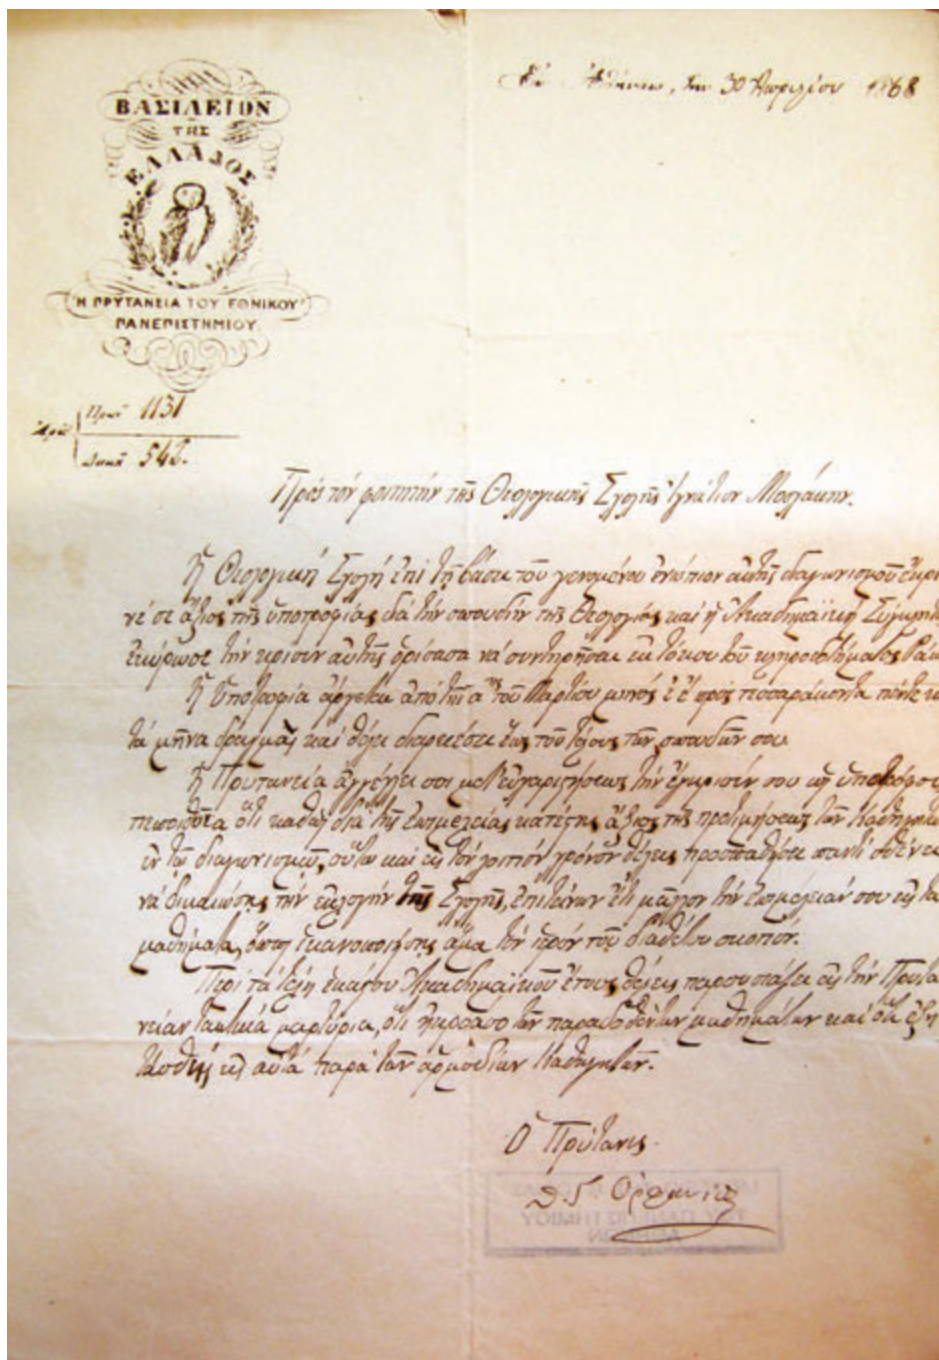 Ἐν Ἀθήναις, τὴν 30 Ἀπριλίου 1868
ΒΑΣΙΛΕΙΟΝ
ΤΗΣ
ΕΛΛΑΔΟΣ
Ἡ ΠΡΥΤΑΝΕΙΑ ΤΟΥ ΕΘΝΙΚΟΥ
ΠΑΝΕΠΙΣΤΗΜΙΟΥ.
Πρωτ 1131
542.
Πρὸς τὸν φοιτητὴν τῆς Θεολογικῆς Σχολῆς Ἰγνάτιον Μοσχάκην.
Ἡ Θεολογικὴ Σχολὴ ἐπὶ τῇ βάσει τοῦ γενομένου ἐνώπιον αὐτῆς διαγωνισμοῦ ἔκρι
νέ σε ἄξιον τῆς ὑποτροφίας διὰ τὴν σπουδὴν τῆς Θεολογίας καὶ ἡ Ἀκαδημαϊκὴ Σύγκλητ
ἐκύρωσε τὴν κρίσιν αὐτῆς ὁρίσασα νὰ συντηρῆσαι ἐκ τόκου τοῦ κληροδοτήματος
Ἡ ὑποτροφία ἄρχεται ἀπὸ τῆς α τοῦ Μαρτίου μηνὸς ἐ ἔ πρὸς τεσσαράκοντα πέντε
τὰ μῆνα δραχμὰς καὶ θέλει διαρκέσει ἕως τοῦ τέλους τῶν σπουδῶν σου
Ἡ Πρυτανεία ἀγγέλλει σοι μετ' εὐχαριστήσεως τὴν ἔγκρισίν σου ὡς ὑποτρόφου
πεποιθυῖα ὅτι καθὼς διὰ τῆς ἐπιμελείας κατέστης ἄξιος τῆς προτιμήσεως τῶν Καθηγητῶ
ἐν τῷ διαγωνισμῷ, οὕτω καὶ εἰς τὸν λοιπὸν χρόνον θέλεις προσπαθήσει παντὶ σθένει
νὰ δικαιώσῃς τὴν ἐκλογὴν τῆς Σχολῆς, ἐπιτείνων ἔτι μᾶλλον τὴν ἐπιμέλειάν σου εἰς τὰ
μαθήματα, ὅπως ἱκανοποιήσῃς ἅμα τὸν ἱερὸν τοῦ διαθέτου σκοπόν.
Περὶ τὰ τέλη ἑκάστου Ἀκαδημαϊκοῦ ἔτους θέλεις παρουσιάζει εἰς τὴν Πρυτα
νείαν τακτικὰ μαρτύρια, ὅτι ἠκροάσω τῶν παραδοθέντων μαθημάτων καὶ ὅτι ἐξη
τάσθης εἰς αὐτὰ παρὰ τῶν ἁρμοδίων Καθηγητῶν.
Ὁ Πρύτανις
Δ. Γ Ὀρφανίδης